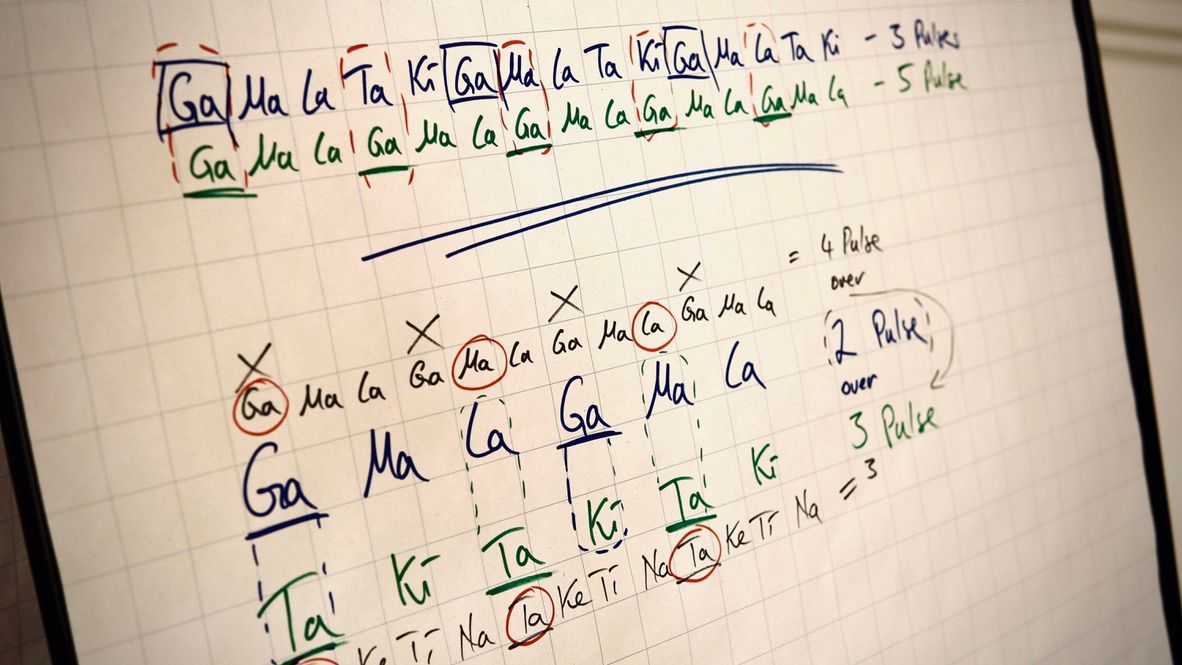 Ga Ma La Ta Ki Ga Ma La Ta Ki Ga Ma La Ta Ki - 3 Pulses
Ga Ma La Ga Ma La Ga Ma La Ga Ma La Ga Ma La - 5 Pulse
X X X X
Ga Ma La Ga Ma La Ga Ma La Ga Ma La = 4 Pulse
over
Ga Ma La Ga Ma La 2 Pulse
over
Ta Ki Ta Ki Ta Ki 3 Pulse
Ke Ti Na Ta Ke Ti Na Ta Ke Ti Na = 3